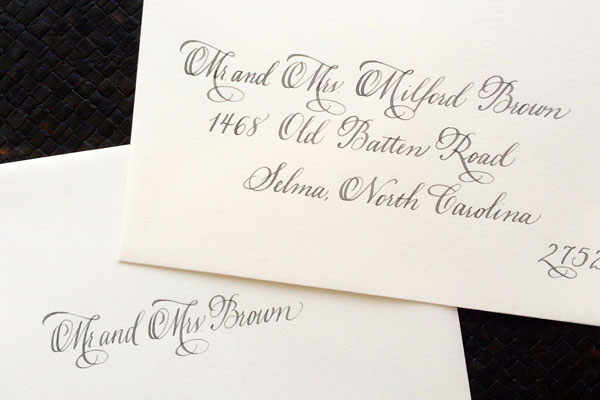 Mr. and Mrs. Milford Brown
1468 Old Batten Road
Selma, North Carolina
2752
Mr. and Mrs. Brown